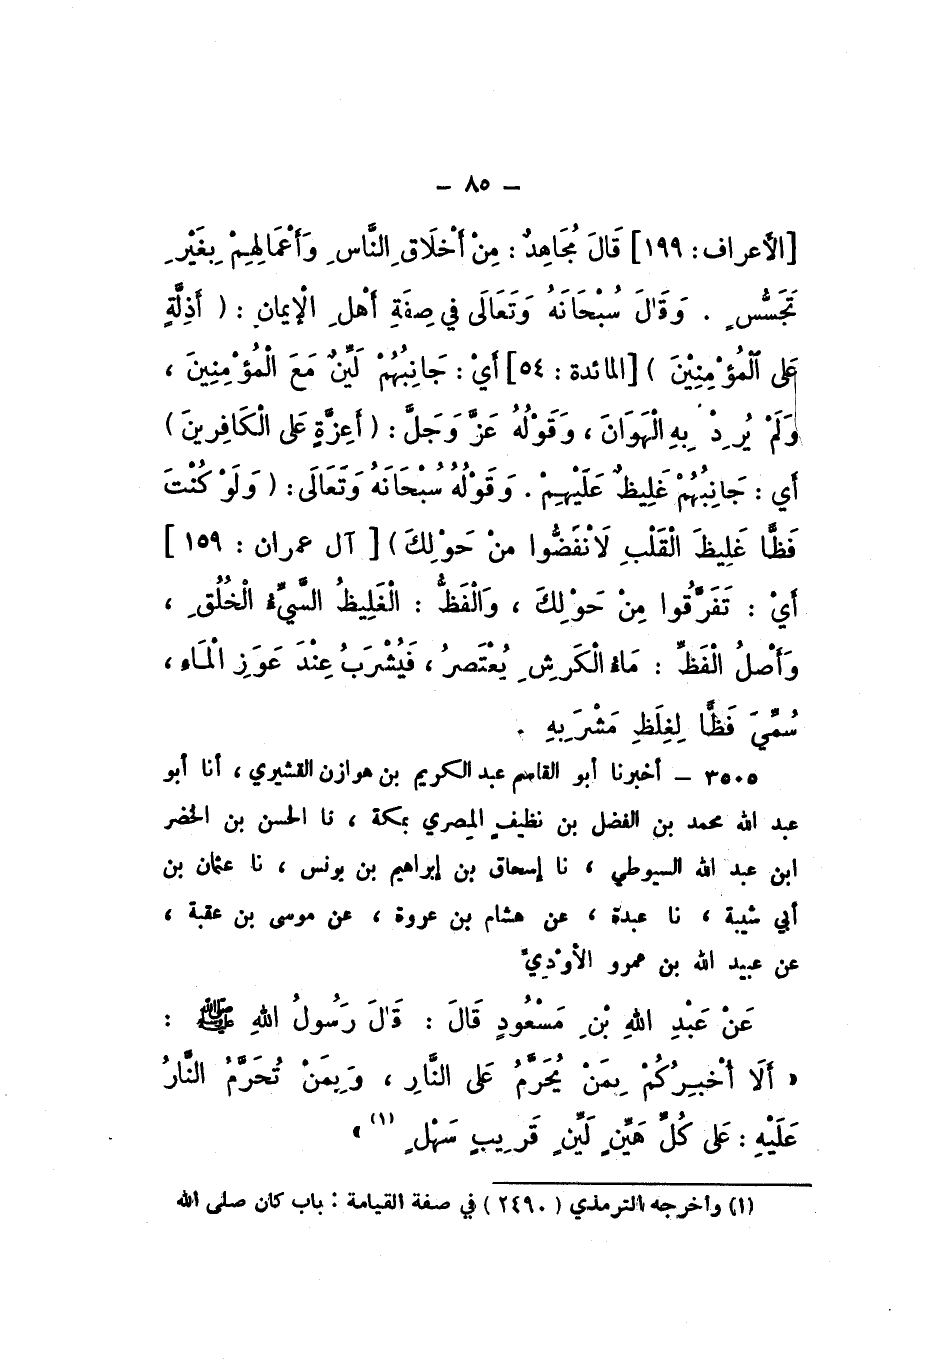 – ٨٥ –
[الأعراف: ١٩٩] قَالَ مُجَاهِدٌ : مِنْ أَخْلَاقِ النَّاسِ وَأَعْمَالِهِمْ بِغَيْرِ
تَجَسُّسٍ . وَقَالَ سُبْحَانَهُ وَتَعَالَى فِي صِفَةِ أَهْلِ الْإِيمَانِ : ( أَذِلَّةٍ
عَلَى الْمُؤْمِنِيْنَ ) [المائدة : ٥٤] أَيْ : جَانِبُهُمْ لَيِّنٌ مَعَ الْمُؤْمِنِينَ ،
وَلَمْ يُرِدْ بِهِ الْهَوَانَ ، وَقَوْلُهُ عَزَّ وَجَلَّ : ( أَعِزَّةٍ عَلَى الْكَافِرِينَ )
أَي : جَانِبُهُمْ غَلِيظٌ عَلَيْهِمْ . وَقَوْلُهُ سُبْحَانَهُ وَتَعَالَى : ( وَلَوْ كُنْتَ
فَظًّا غَلِيظَ الْقَلْبِ لَانْفَضُّوا مِنْ حَوْلِكَ ) [ آل عمران : ١٥٩ ]
أَيْ : تَفَرَّقُوا مِنْ حَوْلِكَ ، وَالْفَظُّ : الْغَلِيظُ السَّيِّءُ الْخُلُقِ ،
وَأَصْلُ الْفَظِّ : مَاءُ الْكَرِشِ يُعْتَصَرُ ، فَيُشْرَبُ عِنْدَ عَوَزِ الْمَاءِ ،
سُمِّيَ فَظًّا لِغِلَظِ مَشْرَبِهِ .
٣٥٠٥ – أخبرنا أبو القاسم عبد الكريم بن هوازن القشيري ، أنا أبو
عبد الله محمد بن الفضل بن نظيفٍ المصري بمكة ، نا الحسن بن الخضر
ابن عبد الله السيوطي ، نا إسحاق بن إبراهيم بن يونس ، نا عثمان بن
أبي شيبة ، نا عبدة ، عن هشام بن عروة ، عن موسى بن عقبة ،
عن عبيد الله بن عمرو الأَوْدِيِّ
عَنْ عَبْدِ اللهِ بْنِ مَسْعُودٍ قَالَ : قَالَ رَسُولُ اللهِ ﷺ :
« أَلَا أُخْبِرُكُمْ بِمَنْ يُحَرَّمُ عَلَى النَّارِ ، وَبِمَنْ تُحَرَّمُ النَّارُ
عَلَيْهِ : عَلَى كُلِّ هَيِّنٍ لَيِّنٍ قَرِيبٍ سَهْلٍ (١) »
(١) وأخرجه الترمذي ( ٢٤٩٠ ) في صفة القيامة : باب كان صلى الله